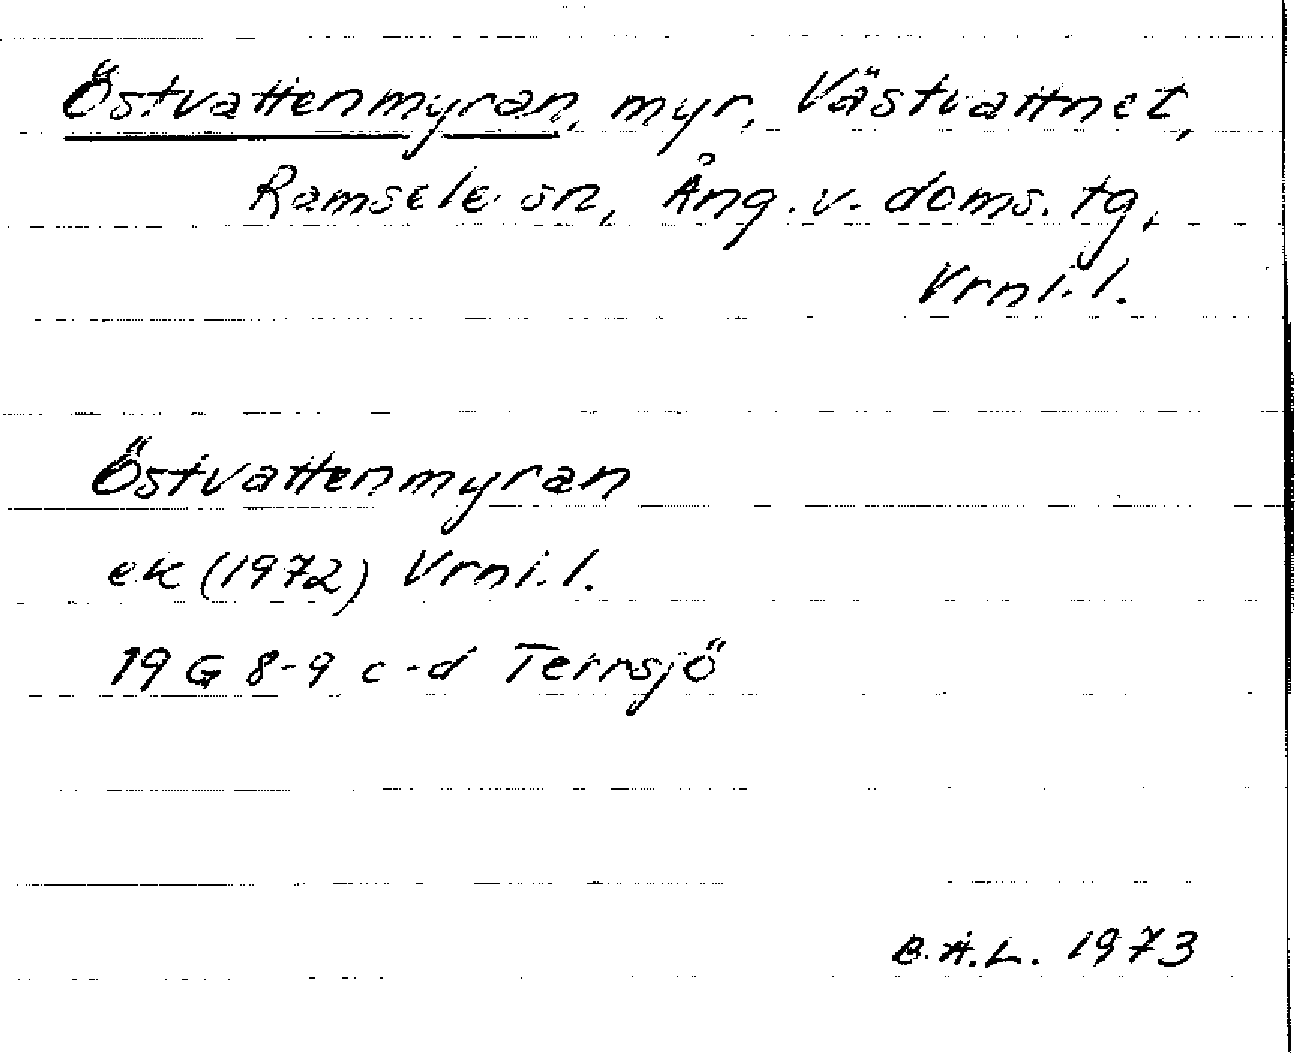 Östvattenmyran, myr, Västvattnet,
Ramsele sn, Ång. v. doms. tg,
Vrnl.l.
Östvattenmyran
ek (1972) Vrnl.l.
19 G 8-9 c-d Terrsjö
B.H.L. 1973